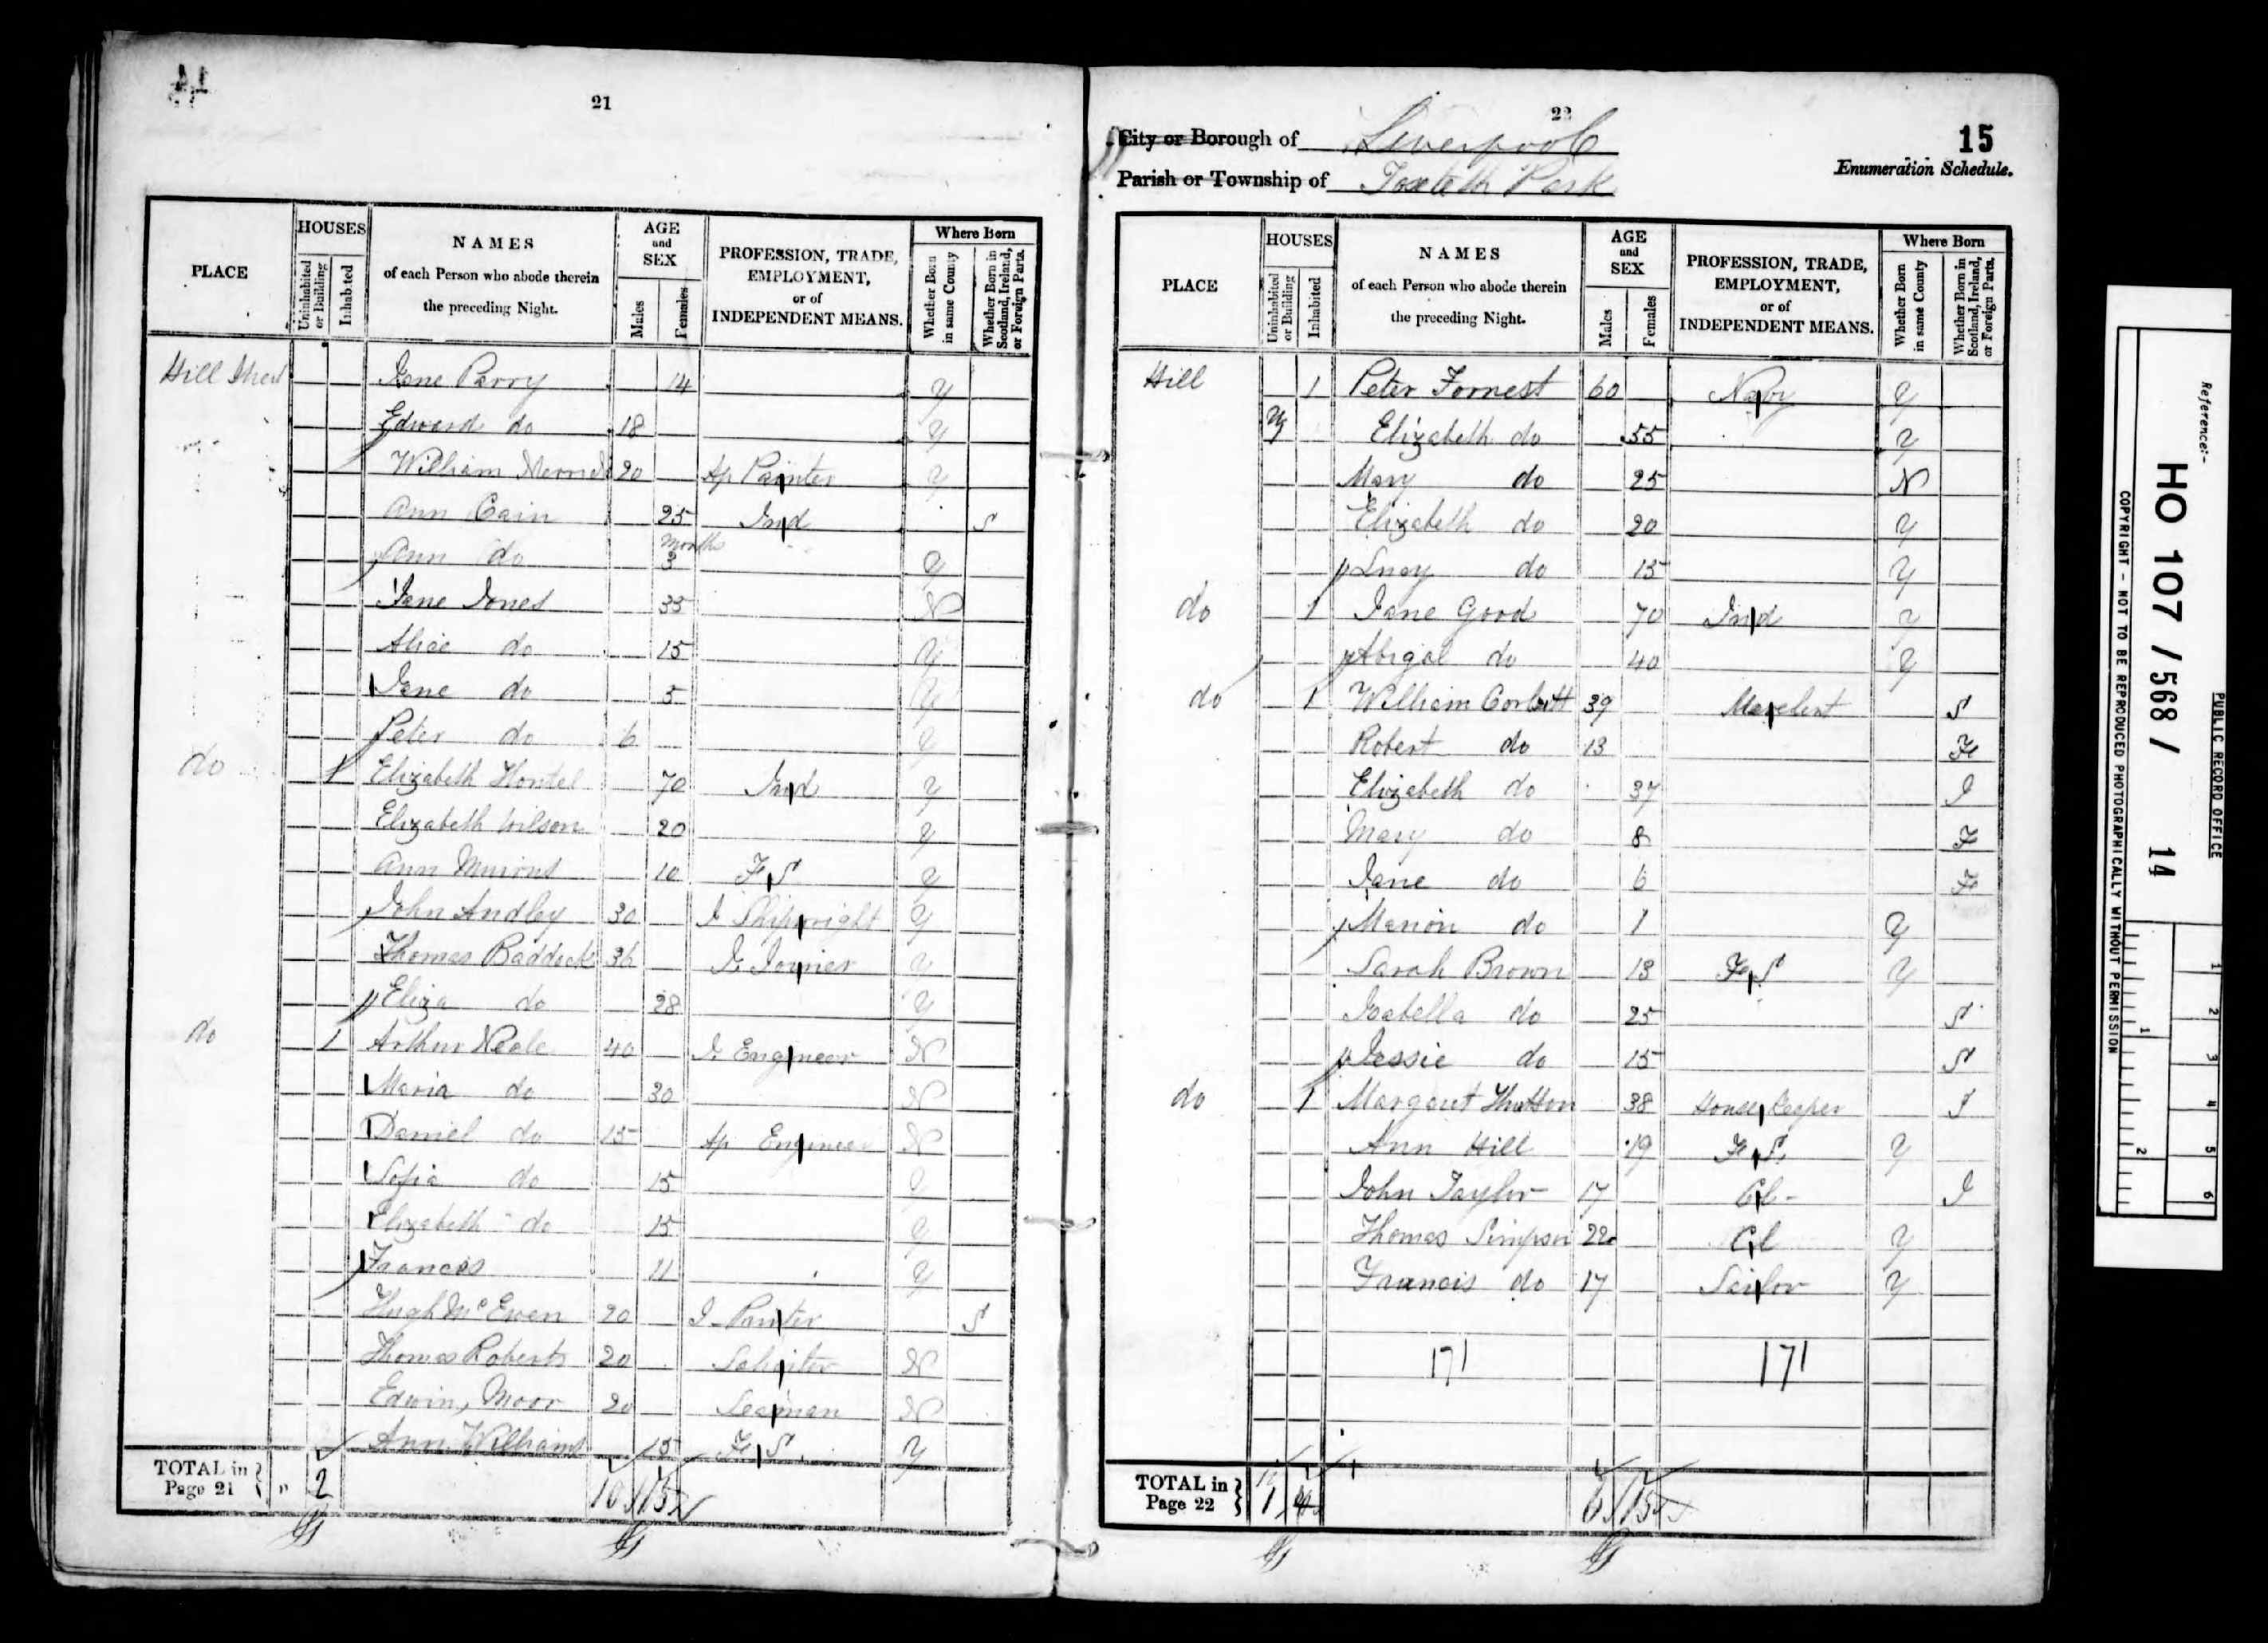 21
HOUSES
AGE
and
SEX
Where Born
PLACE
Uninhabited
or Building
Inhabited
NAMES
of each Person who abode therein
the preceding Night.
Males
Females
PROFESSION, TRADE,
EMPLOYMENT,
or of
INDEPENDENT MEANS.
Whether Born
in same County
Whether Born in
Scotland, Ireland,
or Foreign Parts.
Jane Parry 14 Y
Edward do 18 Y
William 20 Ap Painter Y
Ann Cain 25 Ind S
Months
Ann do 3 Y
Jane Jones 35 N
Alice do 15 Y
Jane do 5 Y
Peter do 6 Y
do 1 Elizabeth 70 Ind Y
Elizabeth Wilson 20 Y
Ann 10 F S Y
John Andley 30 J Shipwright Y
Thomas Baddock 36 J Joiner Y
Eliza do 28 Y
do 1 Arthur Neale 40 J Engineer N
Maria do 30 N
Daniel do 15 Ap Engineer N
Sofia do 15 Y
Elizabeth do 15 Y
Francis 11 Y
Hugh Mc Ewen 20 J Painter S
Thomas Roberts 20 N
Edwin Moor 20 Seaman N
Ann Williams 15 F S Y
TOTAL in
Page 21
2 10 15
22
City or Borough of Liverpool
Parish or Township of Toxteth Park
15
Enumeration Schedule.
HOUSES
AGE
and
SEX
Where Born
PLACE
Uninhabited
or Building
Inhabited
NAMES
of each Person who abode therein
the preceding Night.
Males
Females
PROFESSION, TRADE,
EMPLOYMENT,
or of
INDEPENDENT MEANS.
Whether Born
in same County
Whether Born in
Scotland, Ireland,
or Foreign Parts.
Hill 1 Peter Forrest 60 Y
Elizabeth do 55 Y
Mary do 25 N
Elizabeth do 20 Y
Lucy do 15 Y
do 1 Jane Good 70 Ind Y
Abigal do 40 Y
do 1 William Corbitt 39 S
Robert do 13 F
Elizabeth do 37 I
Mary do 8 F
Jane do 6 F
Marion do 1 Y
Sarah Brown 13 F S Y
Isabella do 25 S
Jessie do 15 S
do 1 Margaret 38 House Keeper
Ann Hill 19 F S Y
John Taylor 17 Cl I
Thomas Simpson 22 Cl Y
Francis do 17 Sailor Y
171 171
TOTAL in
Page 22
1 6 15
Reference:-
HO 107 / 568 / 14
PUBLIC RECORD OFFICE
COPYRIGHT - NOT TO BE REPRODUCED PHOTOGRAPHICALLY WITHOUT PERMISSION
1 2 3 4 5 6
1 2